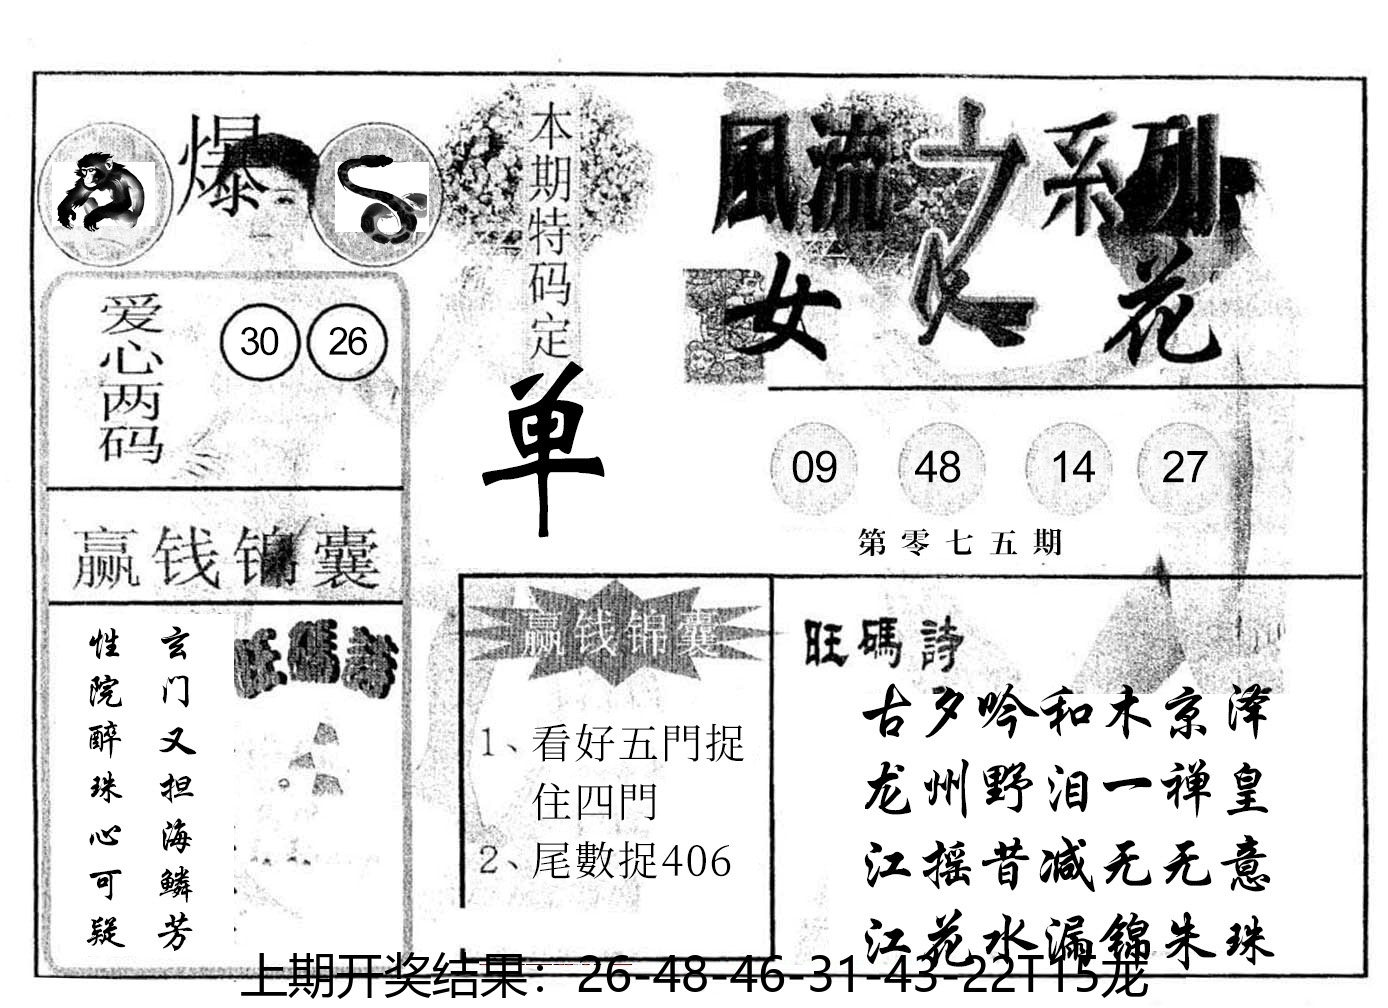 爆
本期特码定
单
風流之系列
女人花
爱心两码
30 26
09 48 14 27
第零七五期
赢钱锦囊
玄门又担海鳞芳
性院醉珠心可疑
旺碼詩
赢钱锦囊
1、看好五門捉
住四門
2、尾數捉406
旺碼詩
古夕吟和木京泽
龙州野泪一禅皇
江摇昔减无无意
江花水漏锦朱珠
上期开奖结果：26-48-46-31-43-22T15龙